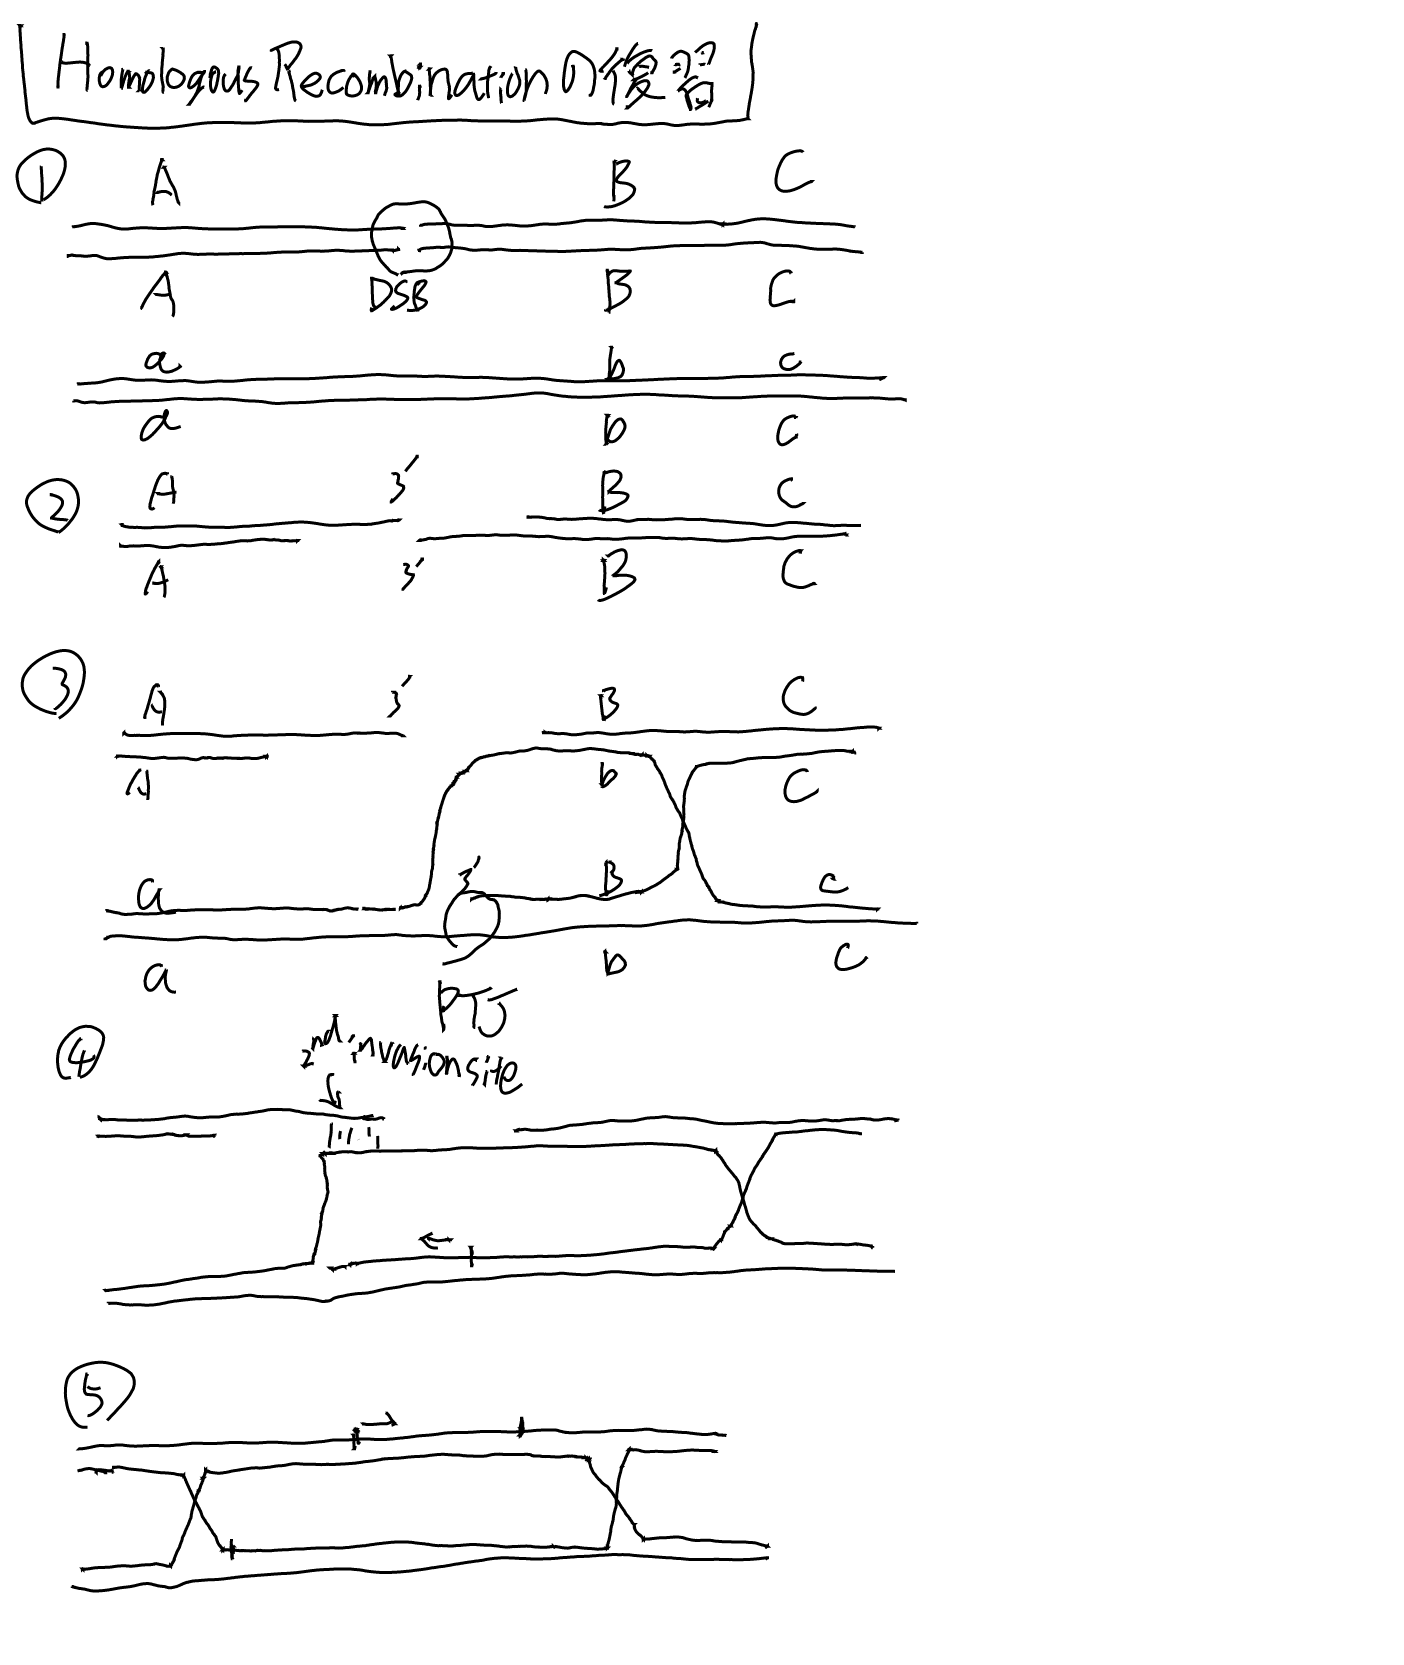 Homologous Recombinationの復習
① A B C
A DSB B C
a b c
a b c
② A 3' B C
A 3' B C
③ A 3' B C
A b C
a 3' B c
a b c
PTJ
④ 2nd invasion site
⑤